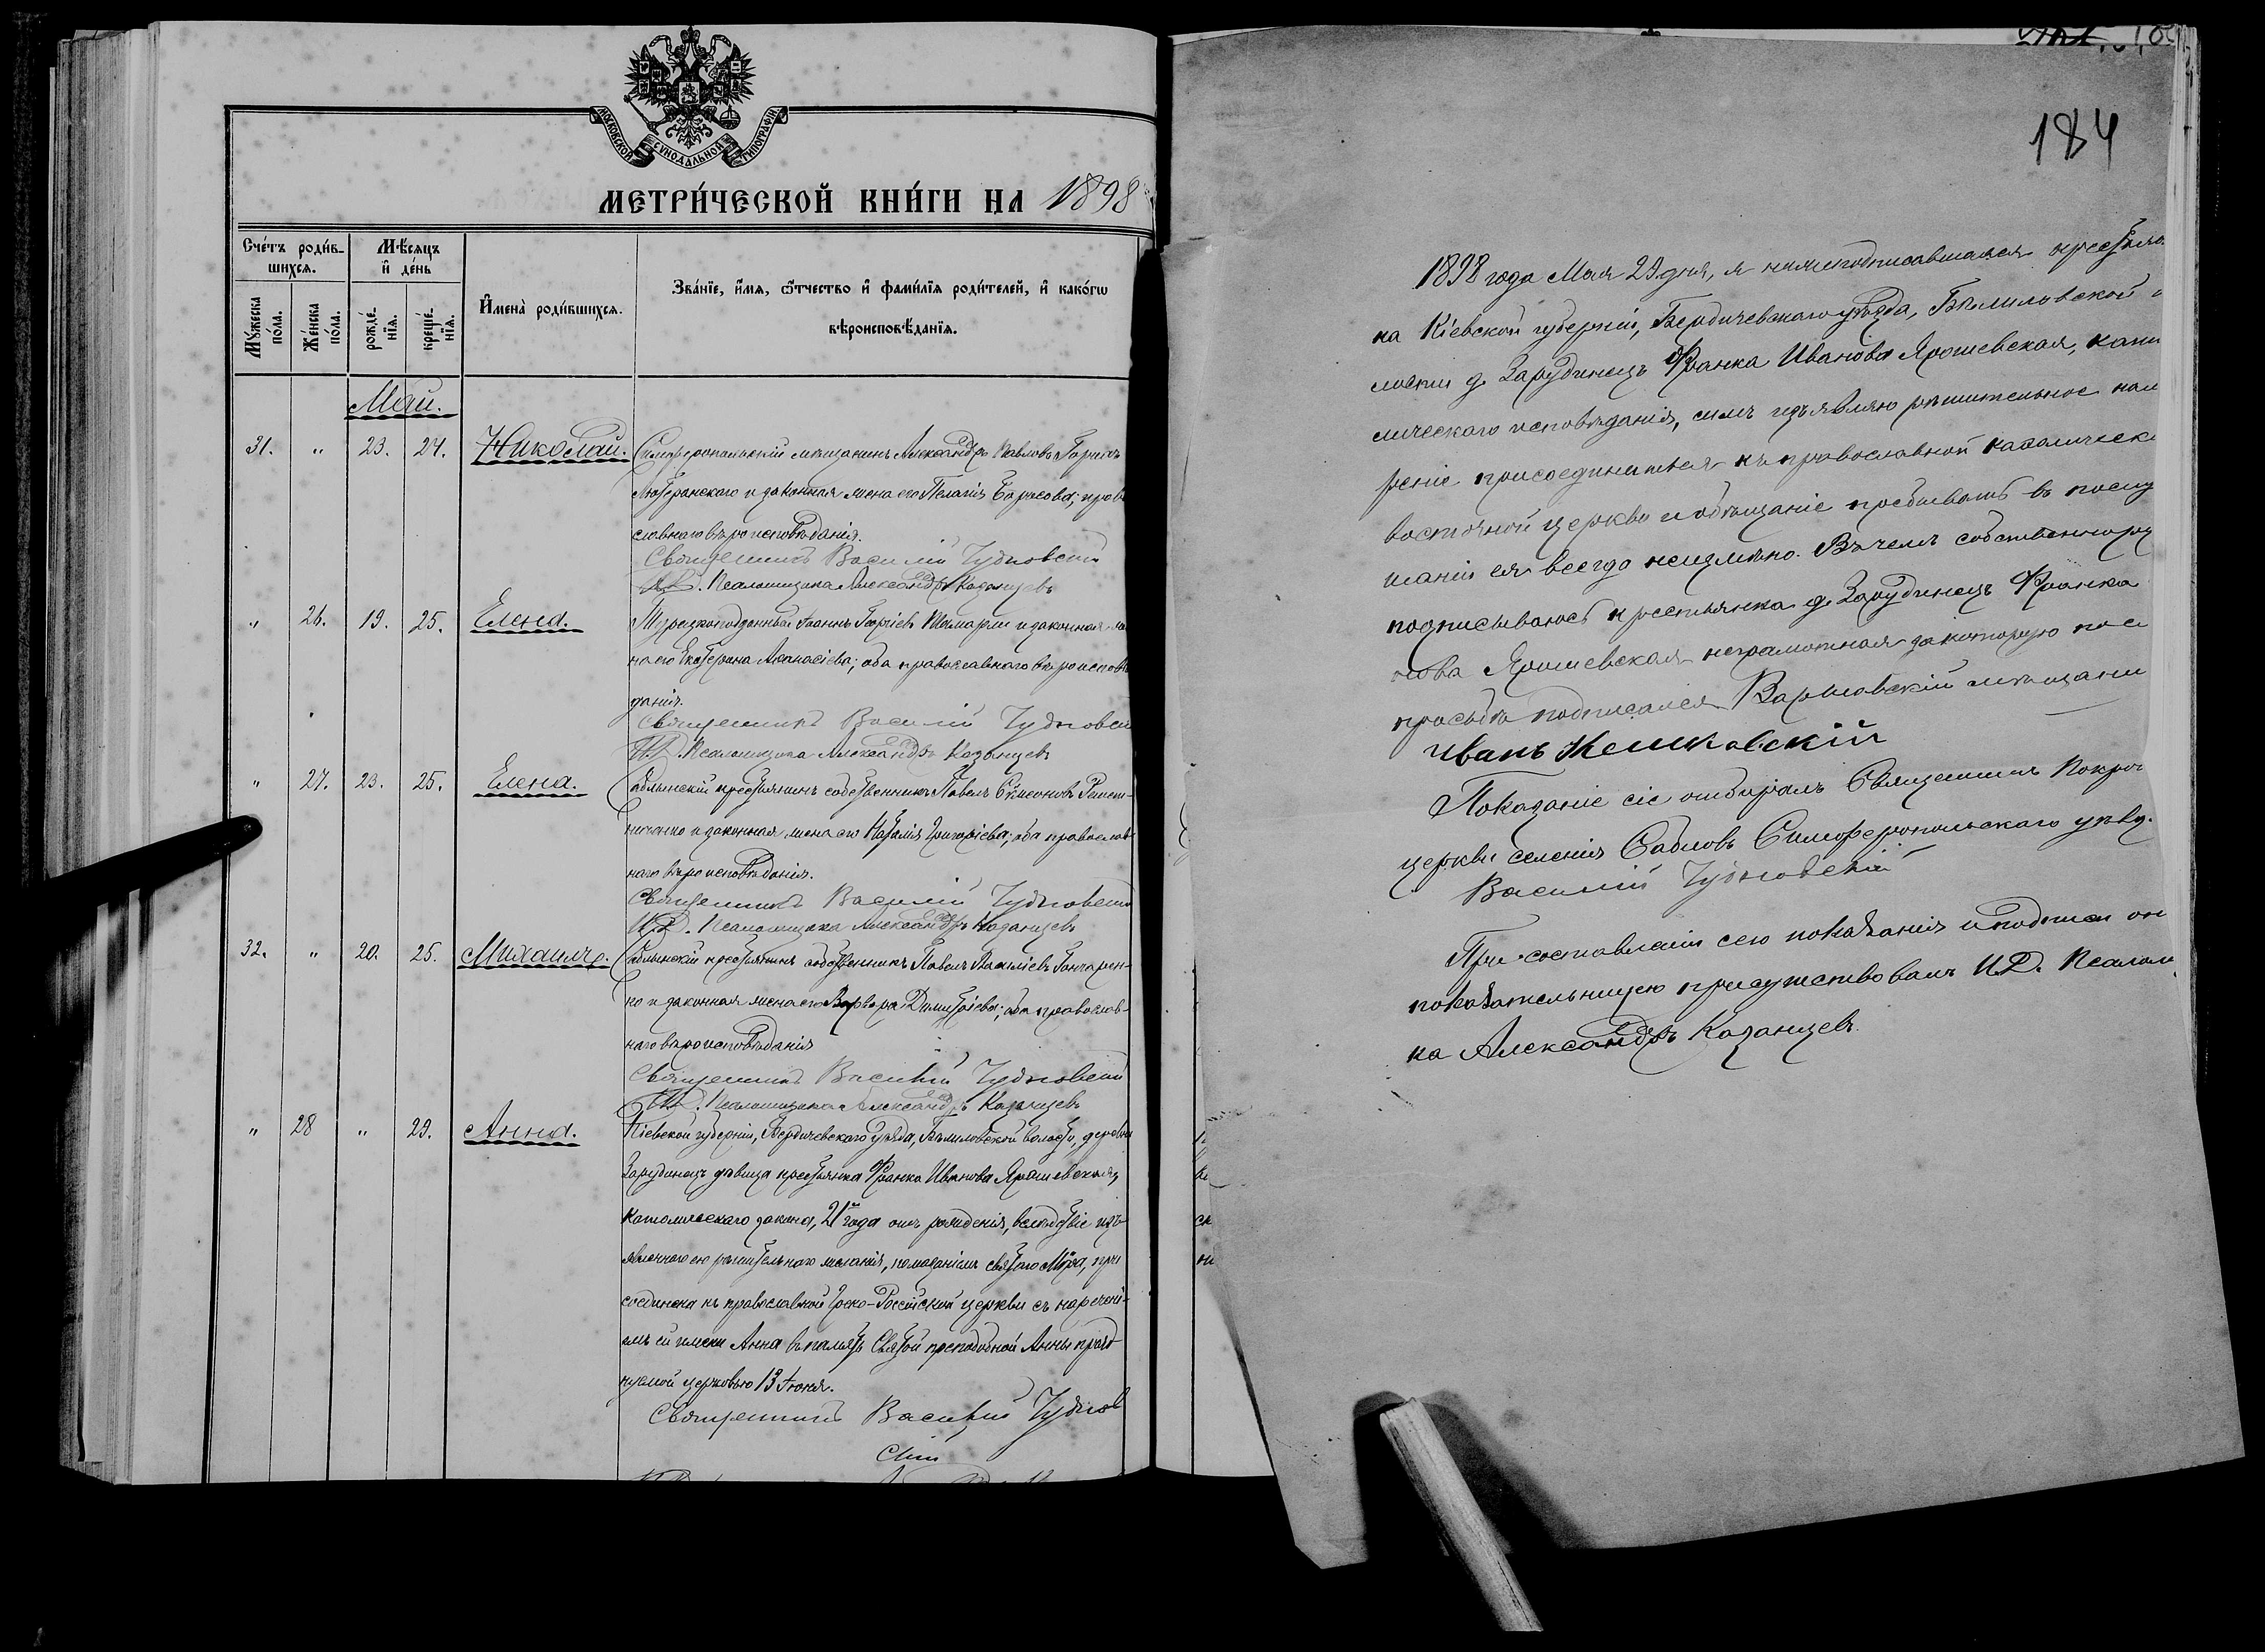 МОСКОВСКОЙ СѴНОДАЛЬНОЙ ТИПОГРАФІИ
МЕТРИ́ЧЕСКОЙ КНИ́ГИ НА 1898
Сче́тъ роди́в-
шихся.
Мѣ́сяцъ
и҆ де́нь
Му́жеска
по́ла.
Же́нска
по́ла.
рожде́-
нїѧ.
креще́-
нїѧ.
И҆мена̀ роди́вшихся.
Зва́нїе, и҆́мѧ, ѻ҆́тчество и҆ фами́лїѧ роди́телей, и҆ како́гѡ
вѣроисповѣ́данїѧ.
Май.
31. " 23. 24. Николай. Симферопольскій мѣщанинъ Александръ Павловъ
Лютеранскаго и законная жена его Пелагія Борисова; право
славнаго вѣроисповѣданія.
Священникъ Василій Чудновскій
И.Д. Псаломщика Александръ Казанцевъ
" 26. 19. 25. Елена. Турецкоподданный Іоаннъ Георгіевъ и законная же
на его Екатерина Аѳанасіева; оба православнаго вѣроисповѣ
данія.
Священникъ Василій Чудновск
И.Д. Псаломщика Александръ Казанцевъ
" 27. 23. 25. Елена. Саблынскій крестьянинъ собственникъ Павелъ Сѵмеоновъ Решет-
ниченко и законная жена его Наталія Григоріева; оба православ
наго вѣроисповѣданія.
Священникъ Василій Чудновскій
И.Д. Псаломщика Александръ Казанцевъ
32. " 20. 25. Михаилъ. Саблынскій крестьянинъ собственникъ Павелъ Василіевъ Гончарен-
ко и законная жена его Варвара Димитріева; оба православ-
наго вѣроисповѣданія
Священникъ Василій Чудновскій
И.Д. Псаломщика Александръ Казанцевъ
" 28 " 29. Анна. Кіевской губерніи, Бердичевскаго уѣзда, Бѣлиловской волости, деревни
Зарудинецъ дѣвица крестьянка Франка Иванова Ярошевская,
католическаго закона, 21 года отъ рожденія, вслѣдствіе изъ-
явленнаго ею рѣшительнаго желанія, помазаніемъ святого Мѵра, при
соединена къ православной Греко-Россійской церкви съ наречені-
емъ ей имени Анна въ память Святой преподобной Анны празд
нуемой церковью 13 Іюня.
Священникъ Василій Чуднов
скій
184
1898 года Мая 29 дня, я нижеподписавшаяся крестьян
ка Кіевской губерніи, Бердичевскаго уѣзда, Бѣлиловской
лости д. Зарудинецъ Франка Иванова Ярошевская, като
лическаго исповѣданія, симъ изъявляю рѣшительное намѣ
реніе присоединиться къ православной каѳолическ
восточной церкви и обѣщаніе пребывать въ послу
шаніи ея всегда неизмѣнно. Въ чемъ собственноруч
подписываюсь крестьянка д. Зарудинецъ Франка
нова Ярошевская неграмотная за которую по ея
просьбѣ подписался Варшавскій мѣщани
Иванъ Кешковскій
Показаніе сіе отбиралъ Священникъ Покров
церкви селенія Сабловъ Симферопольскаго уѣзд.
Василій Чудновскій
При составленіи сего показанія и подписи он
показательницею присутствовалъ И.Д. Псалом
ка Александръ Казанцевъ.